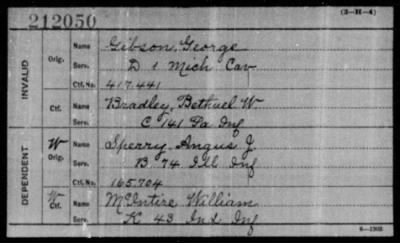 212050 (3-H-4)
INVALID Orig. Name Gibson, George
Serv. D 1 Mich Cav
Ctf. No. 417.441
Ctf. Name Bradley, Bethuel W
Serv. C 141 Pa Inf
DEPENDENT W Orig. Name Sperry, Angus J.
Serv. B 74 Ill Inf
Ctf. No. 165.704
W Ctf. Name McIntire William
Serv. K 43 Ind Inf